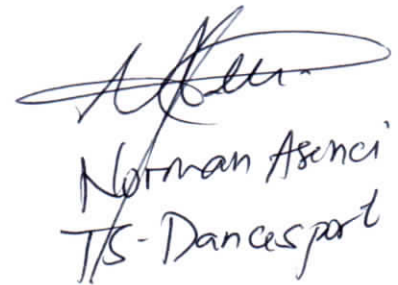 Norman Asenci
T/S-Dancesport